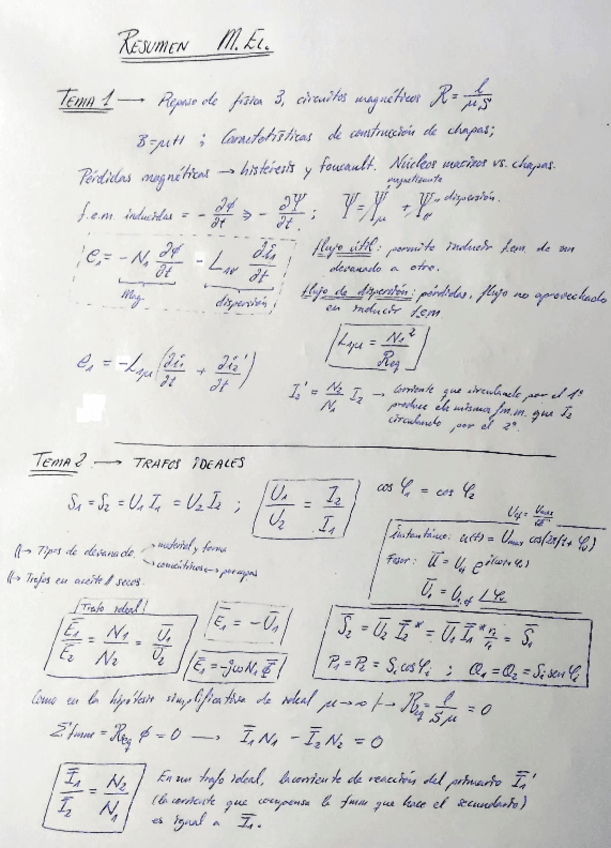 RESUMEN M. EL.
TEMA 1 → Repaso de física 3, circuitos magnéticos R = l/μS
B=μH ; Características de construcción de chapas;
Pérdidas magnéticas → histéresis y foucault. Núcleos macizos vs. chapas.
magnetizante
f.e.m inducidas = - ∂φ/∂t ⇒ - ∂Ψ/∂t ; Ψ = Ψμ + Ψσ → dispersión.
e₁ = -N₁ ∂φ/∂t - L₁σ ∂i₁/∂t
Mag. dispersión
flujo útil: permite inducir fem de un
devanado a otro.
flujo de dispersión: pérdidas, flujo no aprovechado
en inducir fem
L₁μ = N₁²/Req
e₁ = -L₁μ (∂i₁/∂t + ∂i₂'/∂t)
I₂' = N₂/N₁ I₂ → Corriente que circulando por el 1º
produce misma fmm. que I₂
circulando por el 2º.
TEMA 2 → TRAFOS IDEALES
S₁ = S₂ = U₁I₁ = U₂I₂ ; U₁/U₂ = I₂/I₁ cos φ₁ = cos φ₂
→ Tipos de devanado. material y forma
concéntricos → por capas
→ Trafos en aceite // secos.
Instantáneo: u(t) = Umax cos(
Fasor:
Trafo ideal
Ē₁/Ē₂ = N₁/N₂ = Ū₁/Ū₂
Ē₁ = -Ū₁
Ē₁ = -jωN₁φ̄
S̄₂ = Ū₂ Ī₂* = Ū₁ Ī₁* = S̄₁
P₁ = P₂ = Sᵢ cos φᵢ ; Q₁ = Q₂ = Sᵢ sen φᵢ
Como en la hipótesis simplificativa de ideal μ→∞ Req = l/Sμ = 0
Σ fmm = Req φ = 0 → Ī₁N₁ - Ī₂N₂ = 0
Ī₁/Ī₂ = N₂/N₁
En un trafo ideal, la corriente de reacción del primario Ī₁'
(la corriente que compensa la fmm que hace el secundario)
es igual a Ī₁.